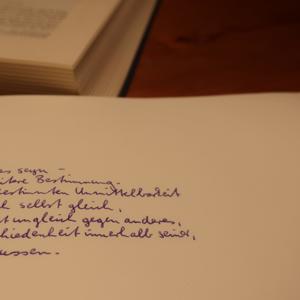 es seyn –
itere Bestimmung.
estimmten Unmittelbarkeit
selbst gleich,
t ungleich gegen anderes,
chiedenheit innerhalb seiner,
aussen.